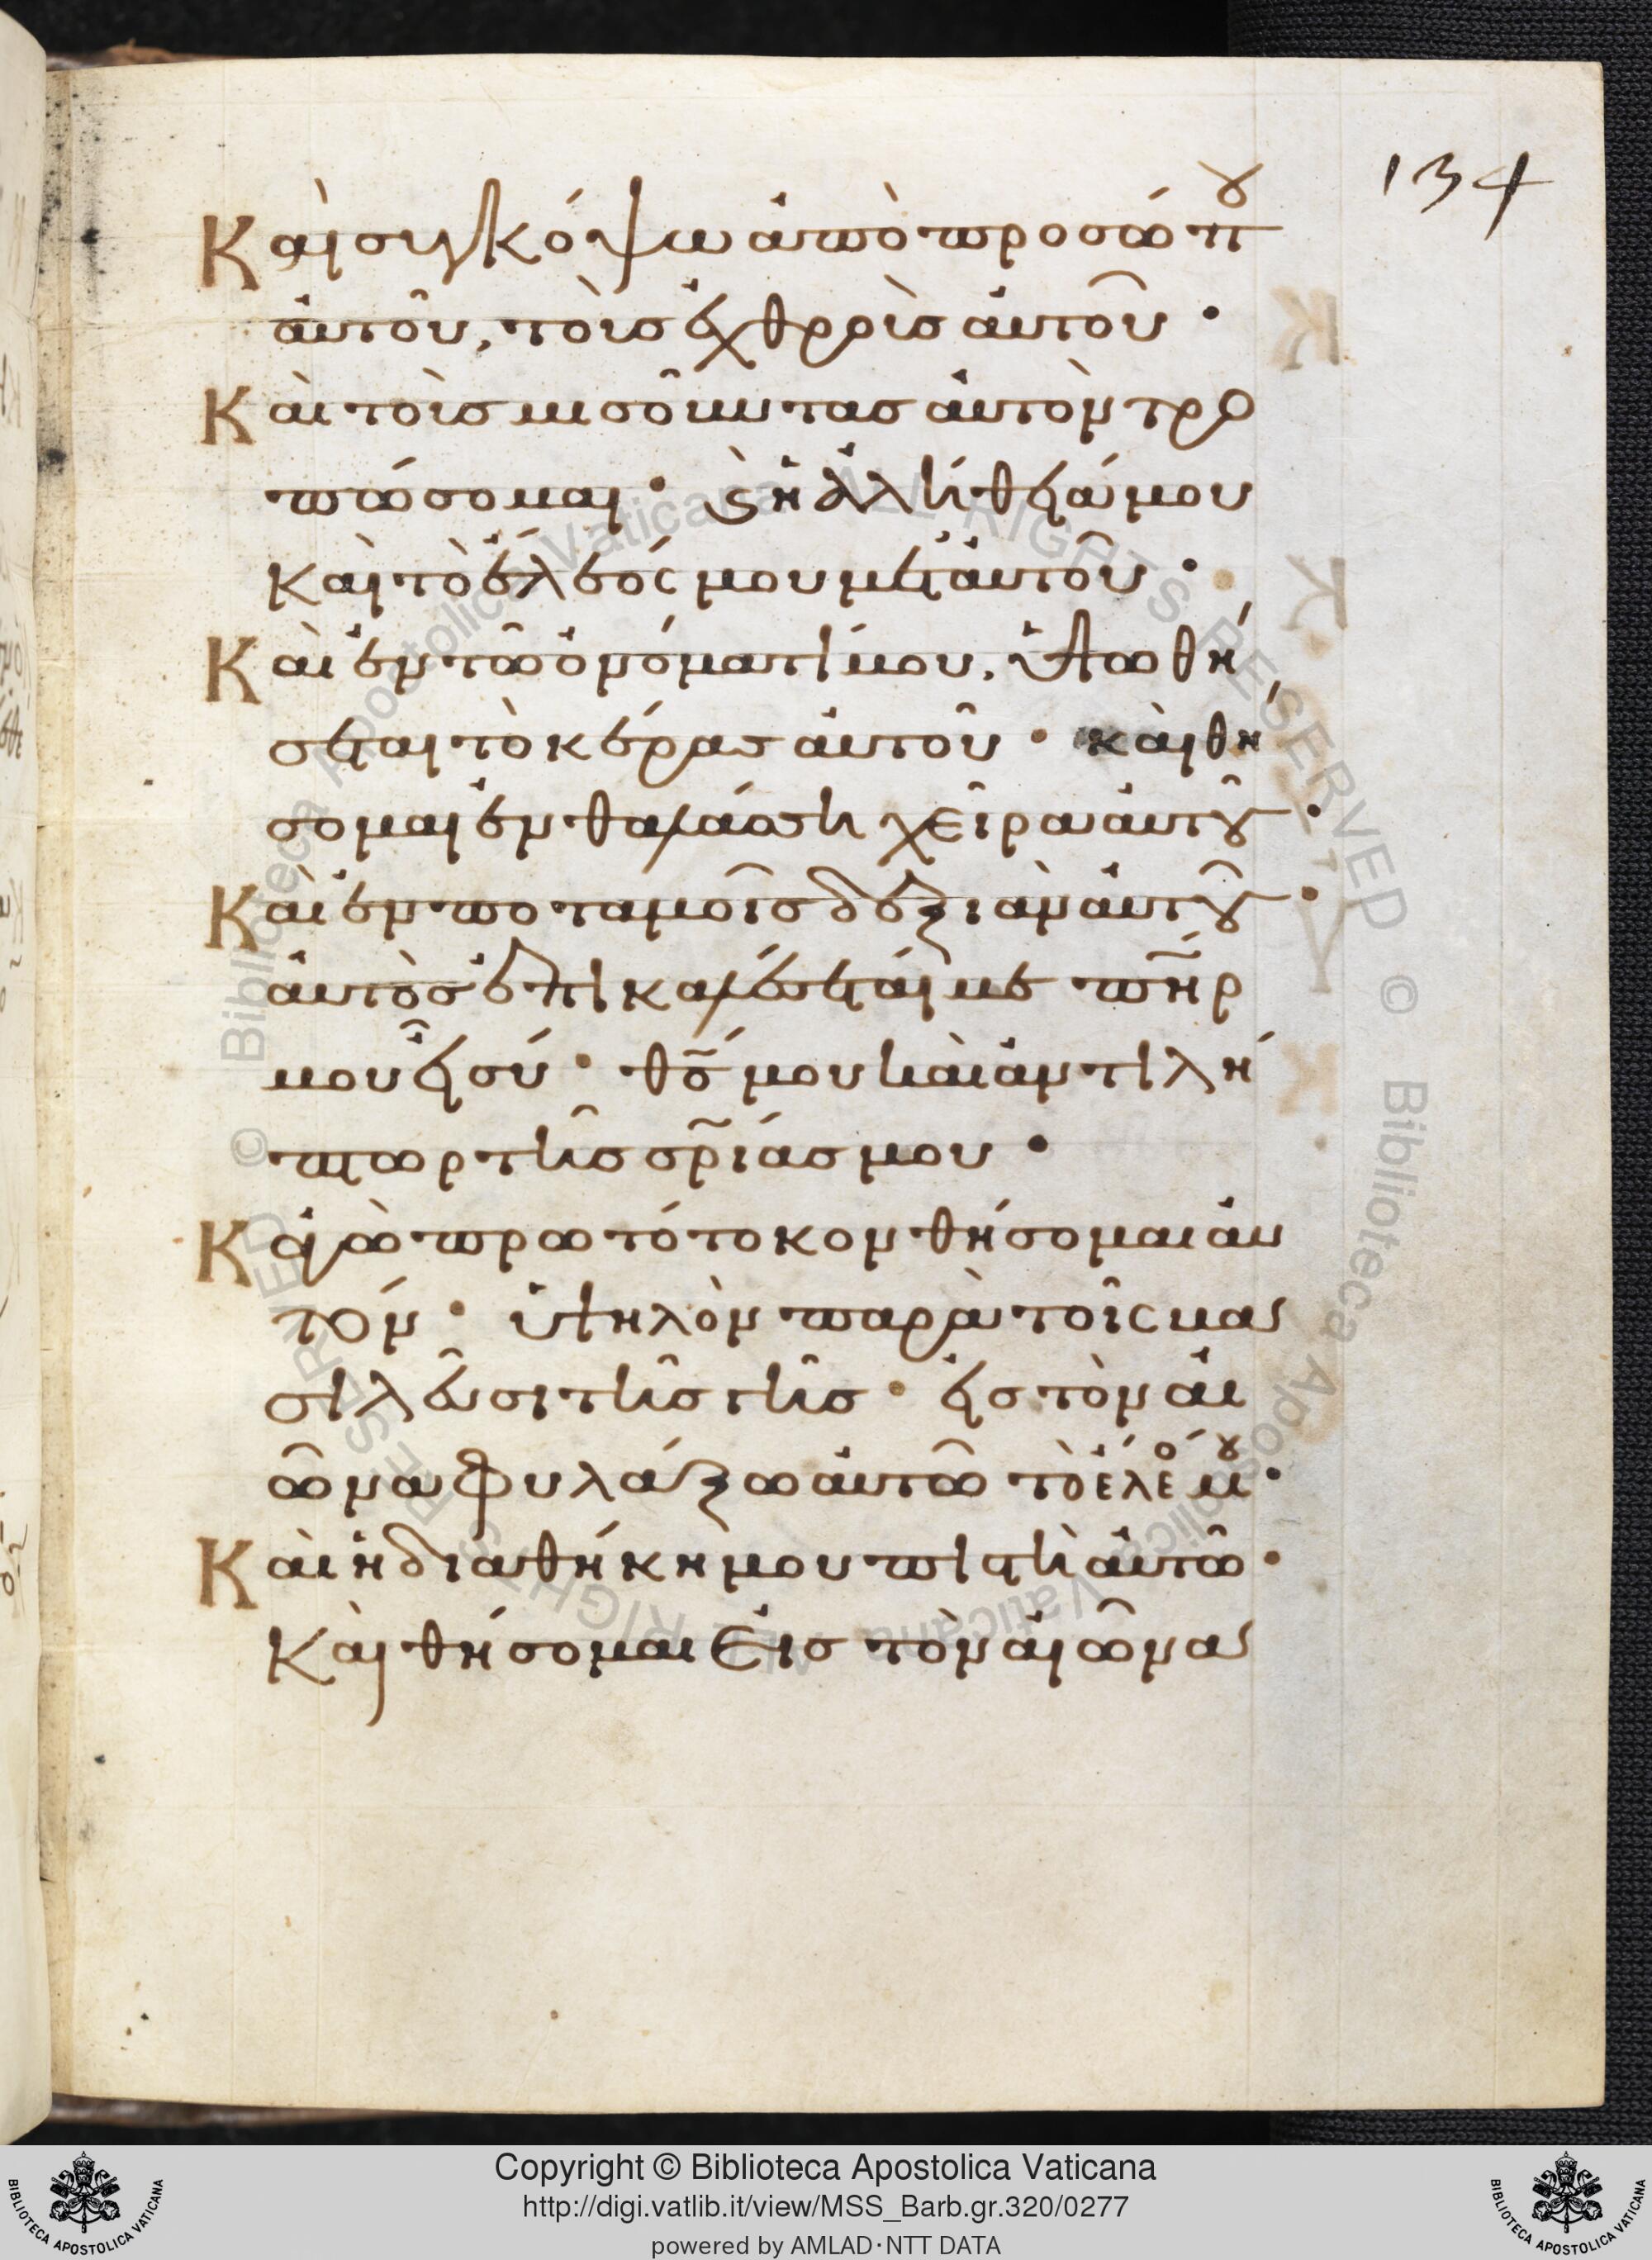 134
Καὶ συγκόψω ἀπὸ προσώπου
ἀυτοῦ, τοὺς ἐχθροὺς ἀυτοῦ ·
Καὶ τοὺς μισοῦντας ἀυτὸν τρο
πώσομαι · Ϛ ἡ ἀλήθειά μου
καὶ τὸ ἔλεός μου μετ ἀυτοῦ ·
Καὶ ἐν τῶ ὀνόματί μου, ὑψωθή
σεται τὸ κέρας ἀυτοῦ · καὶ θή
σομαι ἐν θαλάσση χεῖρα ἀυτοῦ ·
Καὶ ἐν ποταμοῖς δεξιὰν ἀυτοῦ ·
ἀυτὸς ἐπικαλέσεταί με πη̅ρ
μου εἶ σύ · θ̅ς μου καὶ ἀντιλή
πτωρ τῆς σ̅ρίας μου ·
Κἀγὼ πρωτότοκον θήσομαι ἀυ
τόν · ὑψηλὸν παρὰ τοῖς βα
σιλεῦσι τῆς γῆς · εἰς τὸν αἰ
ῶνα φυλάξω ἀυτῶ τὸ ἔλεός μου ·
Καὶ ἡ διαθήκη μου πιστὴ ἀυτῶ ·
Καὶ θήσομαι εἰς τὸν αἰῶνα
Copyright © Biblioteca Apostolica Vaticana
http://digi.vatlib.it/view/MSS_Barb.gr.320/0277
powered by AMLAD·NTT DATA
BIBLIOTECA APOSTOLICA VATICANA
BIBLIOTECA APOSTOLICA VATICANA